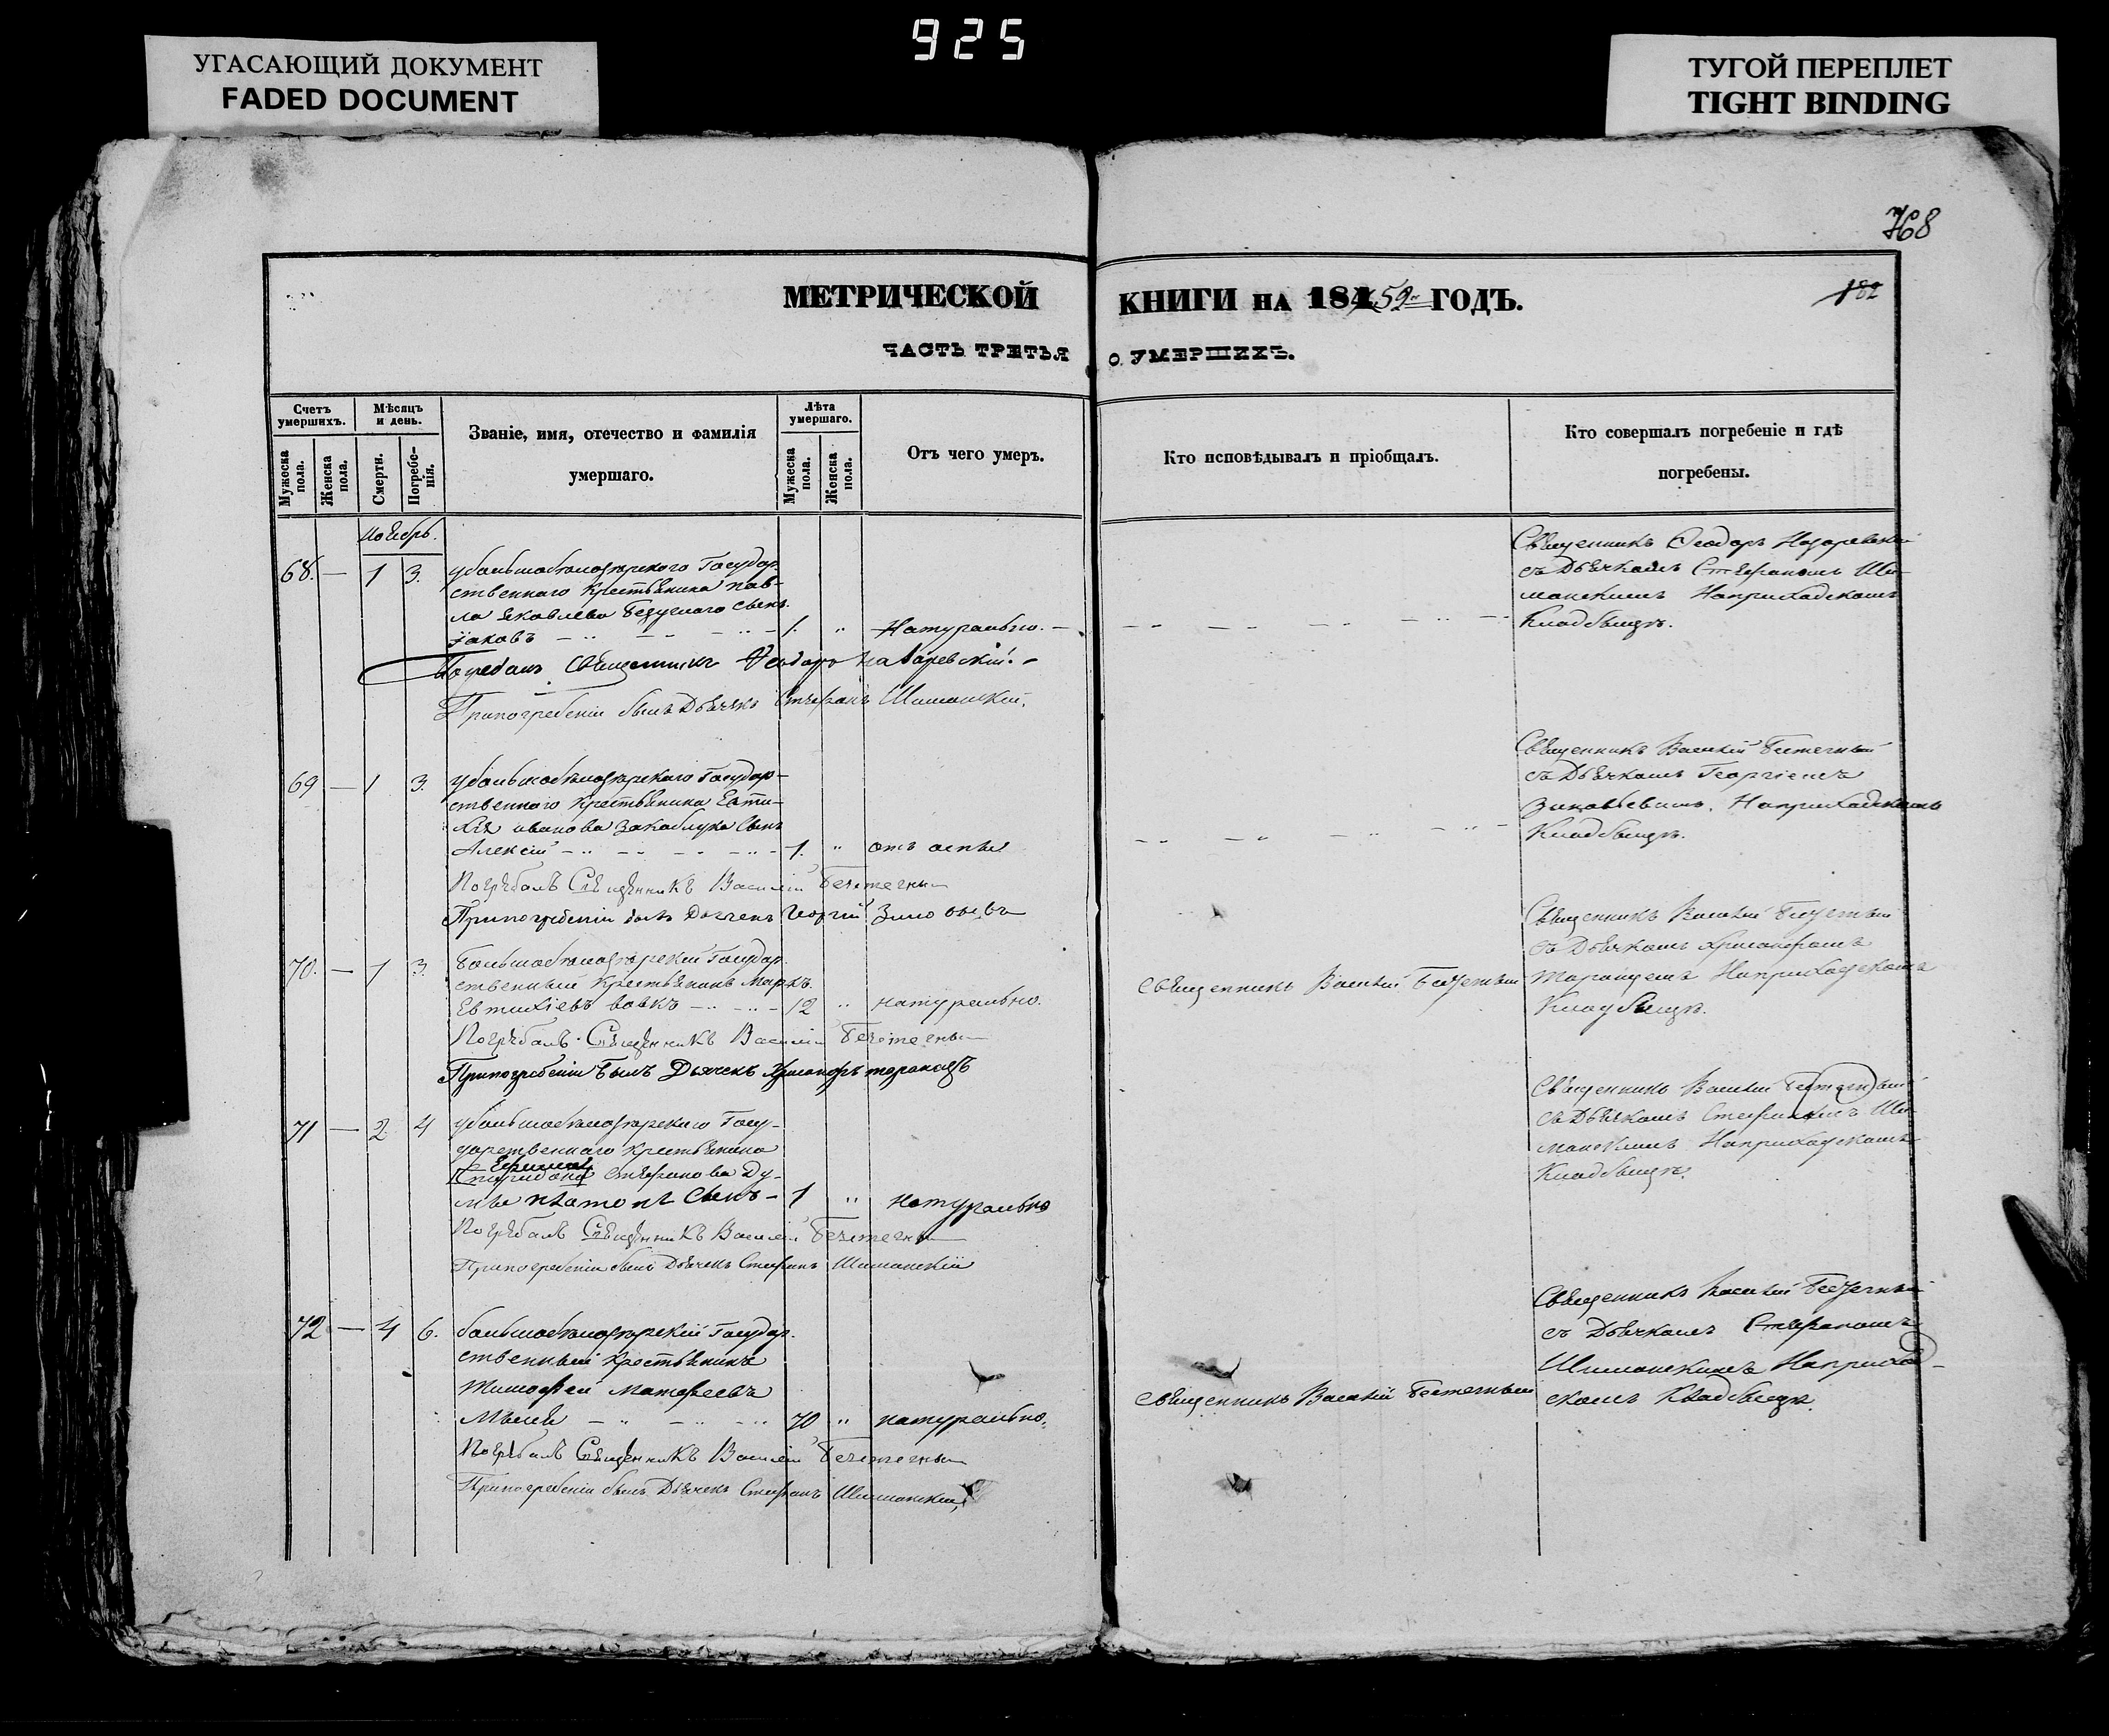 925
УГАСАЮЩИЙ ДОКУМЕНТ
FADED DOCUMENT
ТУГОЙ ПЕРЕПЛЕТ
TIGHT BINDING
768
182
МЕТРИЧЕСКОЙ КНИГИ НА 1859 ГОДЪ.
ЧАСТЬ ТРЕТЬЯ О УМЕРШИХЪ.
Счетъ умершихъ.
Мужеска пола.
Женска пола.
Мѣсяцъ и день.
Смерти.
Погребенія.
Званіе, имя, отечество и фамилія
умершаго.
Лѣта умершаго.
Мужеска пола.
Женска пола.
Отъ чего умеръ.
Кто исповѣдывалъ и пріобщалъ.
Кто совершалъ погребеніе и гдѣ
погребены.
Ноябрь.
68. — 1 3.
Государ-
ственнаго крестьянина Пав-
ла Яковлева сынъ
Іаковъ 1. " Натурально.
Священникъ Феодоръ Назаревскій
съ Дьячкомъ Стефаномъ Ши-
манскимъ На приходскомъ
Кладбищѣ.
Погребалъ Священникъ Феодоръ Назаревскій.
При погребеніи былъ Дьячекъ Стефанъ Шиманскій.
69 — 1 3.
Государ-
ственнаго крестьянина Евти-
хія Иванова Закаблука сынъ
Алексій 1. " отъ оспы
Священникъ Василій
съ Дьячкомъ Георгіемъ
Зиновьевымъ На приходскомъ
Кладбищѣ.
Погребалъ Священникъ Василій
При погребеніи былъ Дьячекъ Георгій Зиновьевъ
70. — 1 3.
Государ-
ственный крестьянинъ Маркъ
Евтихіевъ Вовкъ 12 " натурально.
Священникъ Василій
Священникъ Василій
съ Дьячкомъ
На приходскомъ
Кладбищѣ.
Погребалъ Священникъ Василій
При погребеніи былъ Дьячекъ
71 — 2. 4
Госу-
дарственнаго крестьянина
Стефанова Ду-
сынъ 1 " натурально
Священникъ Василій
съ Дьячкомъ Стефаномъ Ши-
манскимъ На приходскомъ
Кладбищѣ.
Погребалъ Священникъ Василій
При погребеніи былъ Дьячекъ Стефанъ Шиманскій
72 — 4 6.
Государ-
ственный крестьянинъ
Тимофей Матфеевъ
70 " натурально.
Священникъ Василій
Священникъ Василій
съ Дьячкомъ Стефаномъ
Шиманскимъ На приход-
скомъ Кладбищѣ.
Погребалъ Священникъ Василій
При погребеніи былъ Дьячекъ Стефанъ Шиманскій